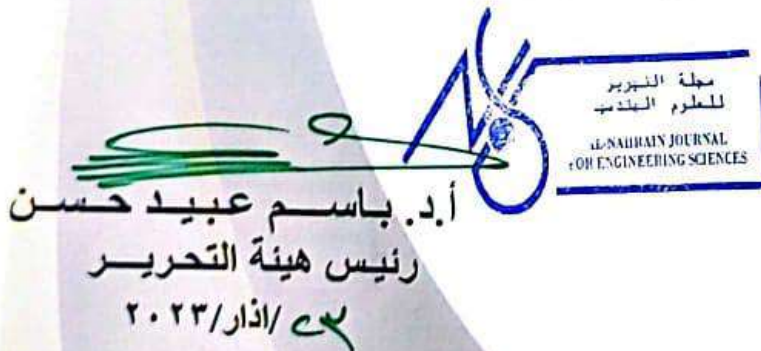 مجلة النهرين
للعلوم الهندسية
AL-NAHRAIN JOURNAL
FOR ENGINEERING SCIENCES
أ.د. باسم عبيد حسن
رئيس هيئة التحرير
٢٣/اذار/٢٠٢٣